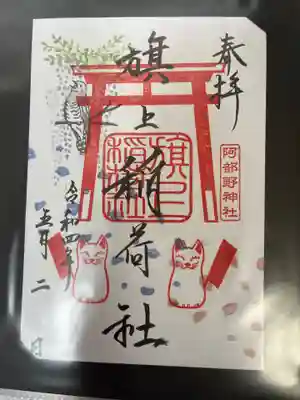 奉拝
阿部野神社
旗上稲荷社
旗上稲荷社
令和四年
五月二日